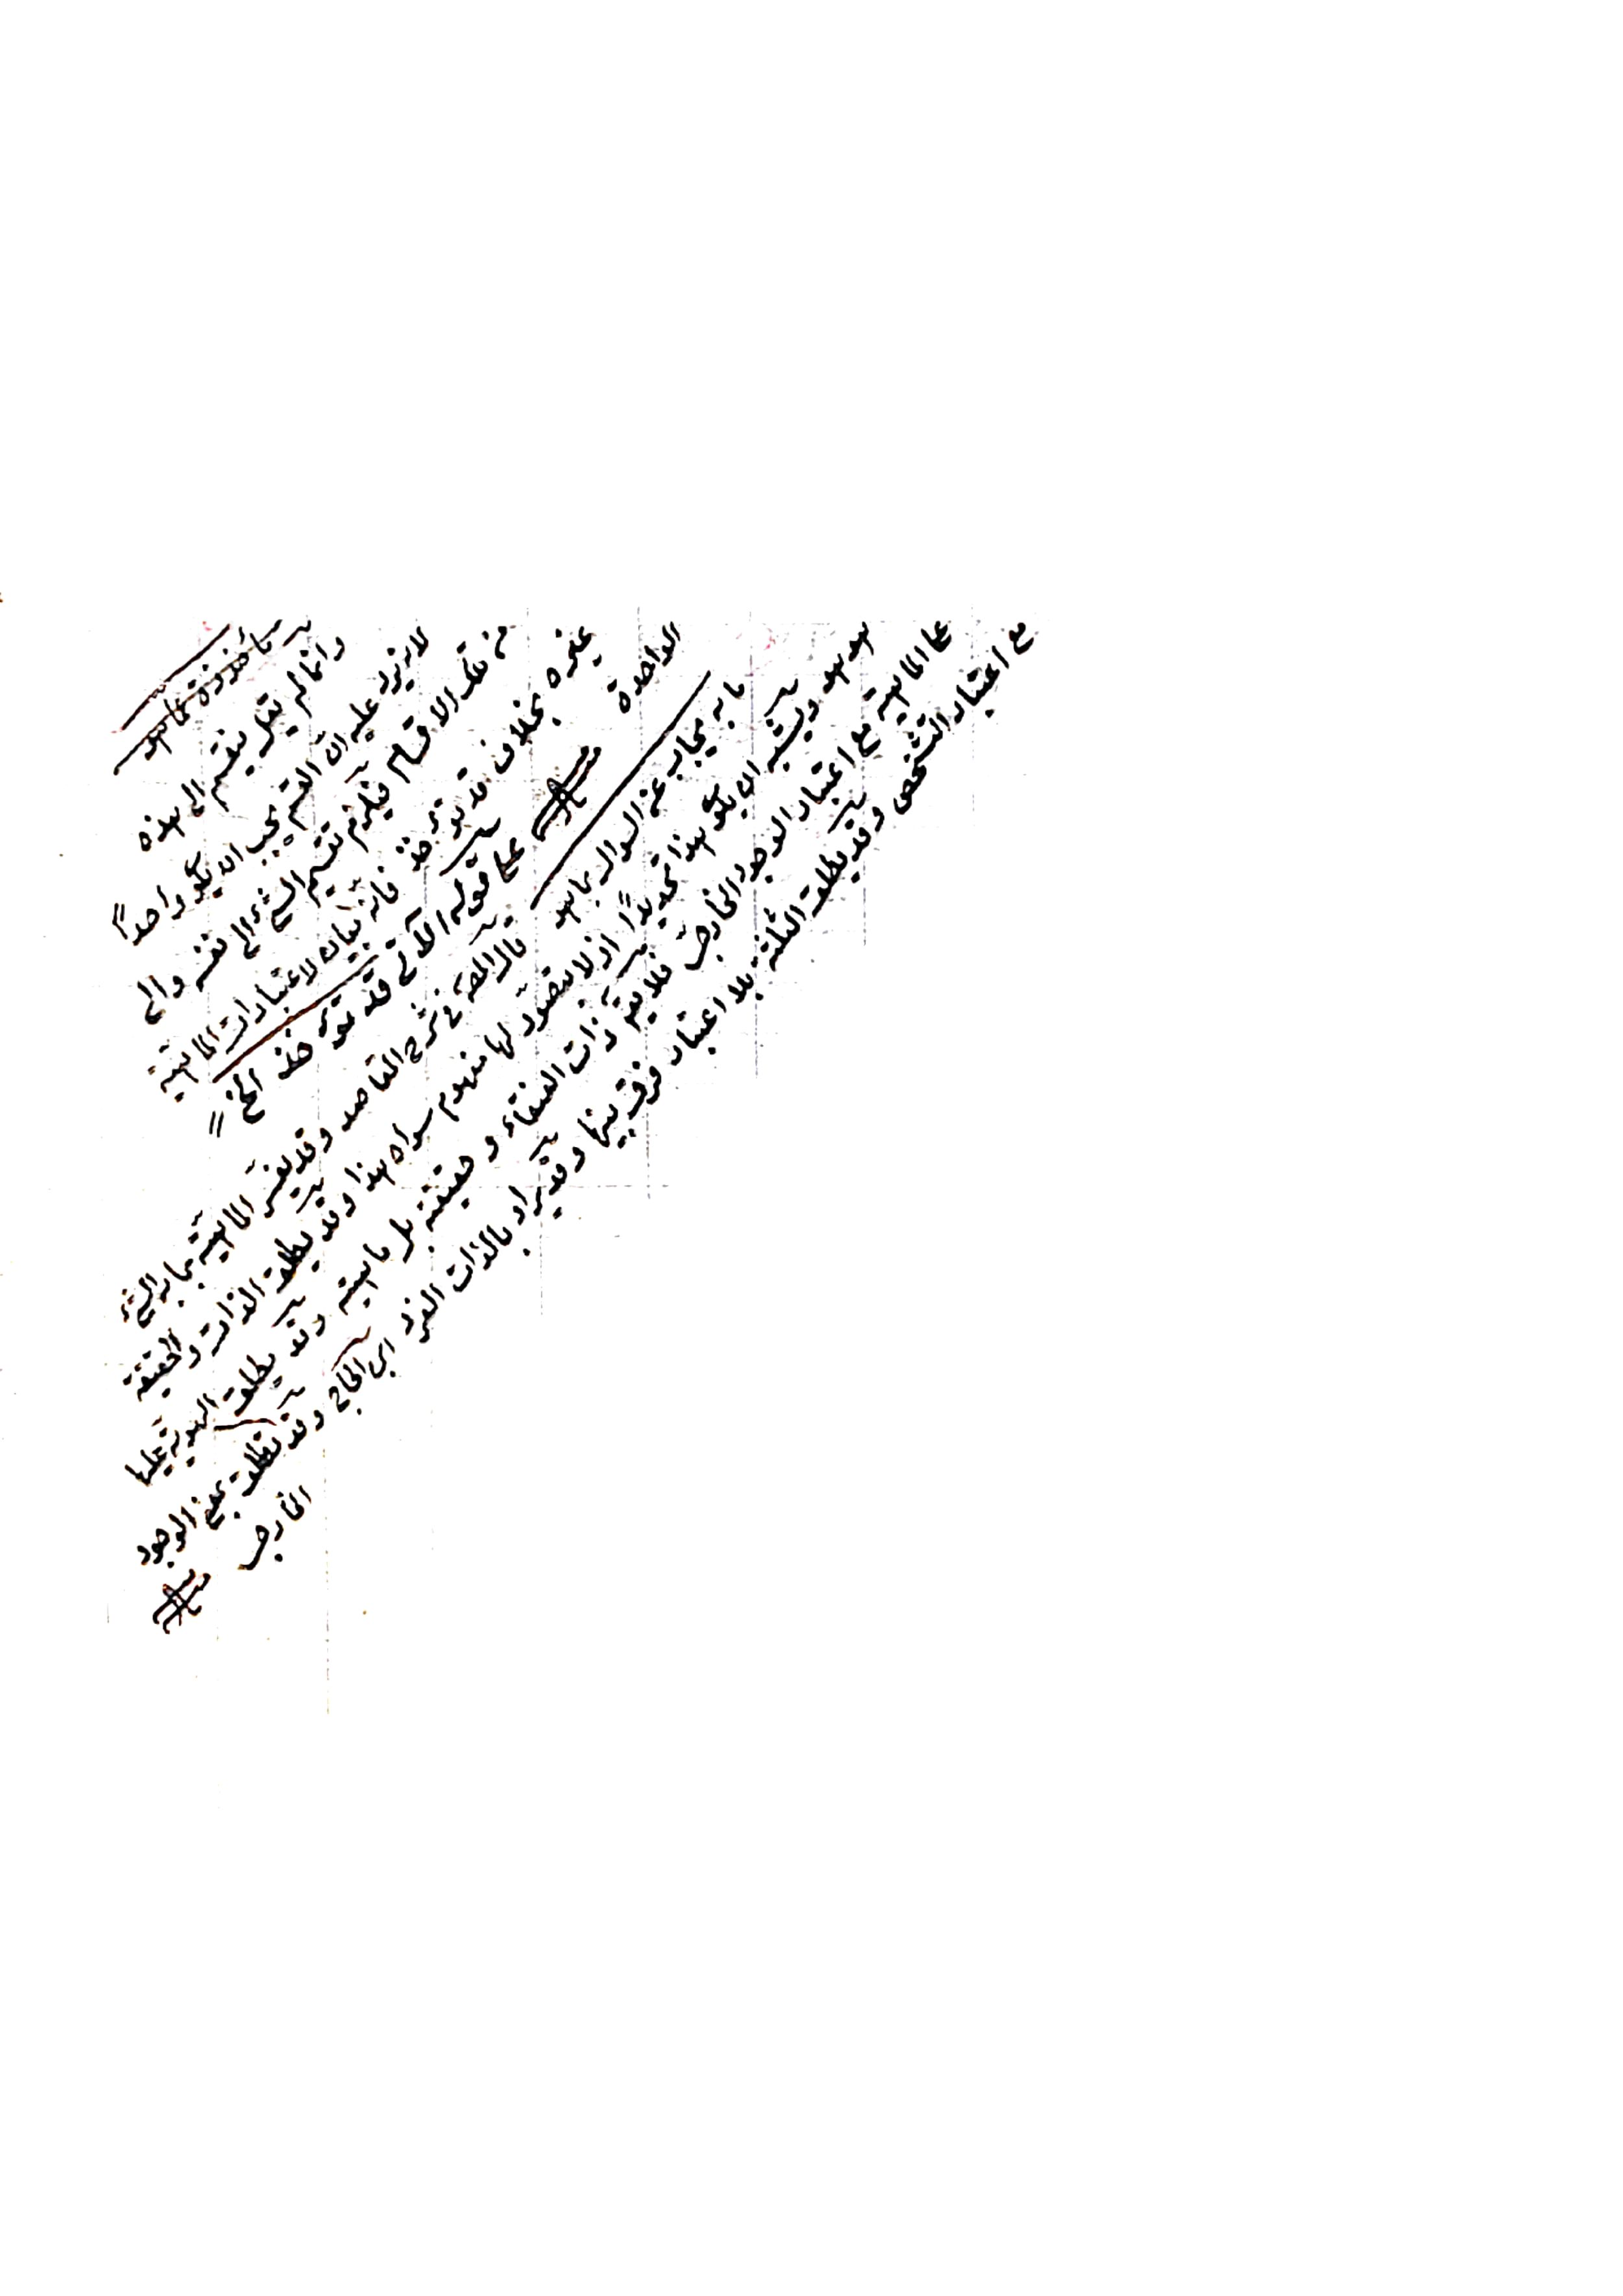 مأخوذة
وانما لم يقل تنقسم الى هذه
لئلا يرد عليه ان المقسم يجب ان يكون واحدا
في تلك الاقسام فيلزم تقسيم الشئ الى نفسه والى
غيره بخلاف قد تؤخذ فانه بيان لاعتبارات الماهية
الواحدة
على قوله قد تؤخذ الخ
ما به يجاب عن السؤال بما هو قال في شرح المقاصد وقد يفسر الماهية بما به الشئ
هو هو ويشبه ان يكون هذا تحديدا اذ لا يتصور لها مفهوم سواه هذا وقد يطلق الذات والحقيقة
على الماهية مع اعتبار الوجود الخارجي فلا يقال ذات العنقاء وحقيقته بل ماهيته وقد يطلق الهوية عليها
مع اعتبار التشخص وقد يطلق الثلثة بلا اعتبار فرق بينها وقد يراد بالذات وقد تطلق على الوجود
الخارجي